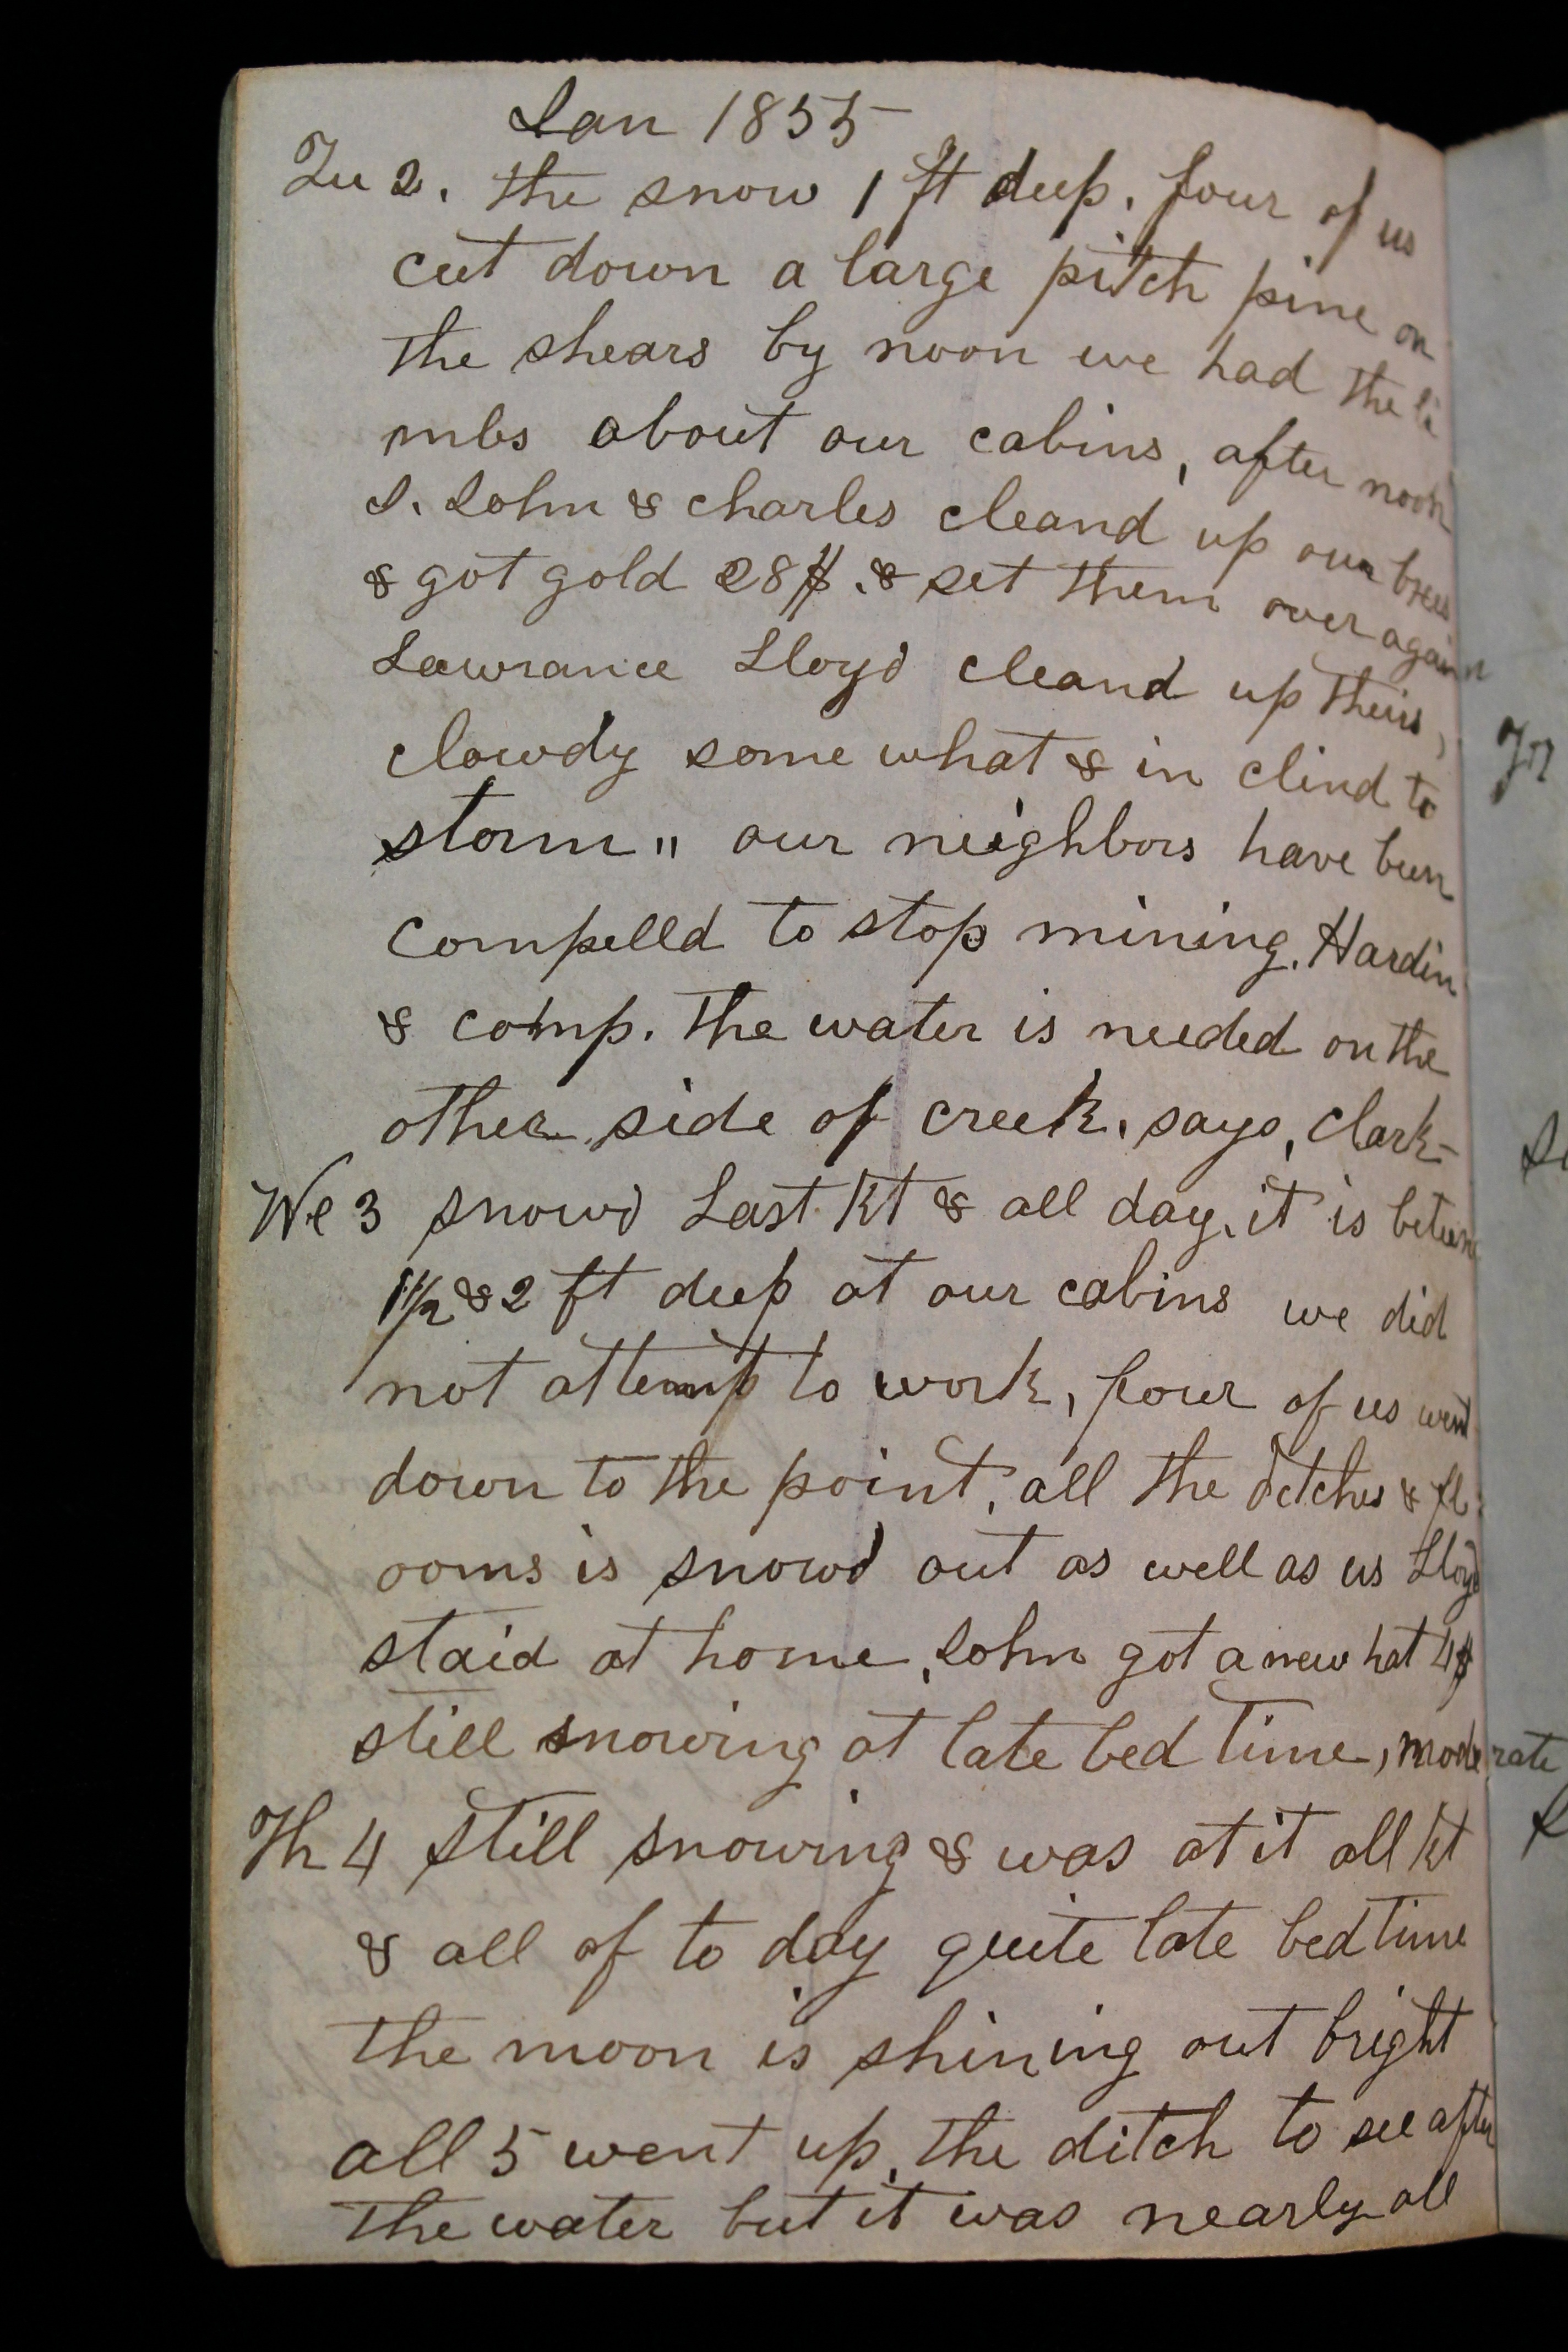 Jan 1855
Tu 2. the snow 1 ft deep, four of us
cut down a large pitch pine on
the shears by noon we had the li
mbs about our cabins, after noon
I. John & charles cleand up our
& got gold 28$. & set them over again
Lawrance Lloyd cleand up theirs,
clowdy some what & in clind to
storm " our neighbors have been
compelld to stop mining. Hardin
& comp. the water is needed on the
other side of creek. says, Clark-
We 3 snowd Last Nt & all day. it is between
1 1/2 & 2 ft deep at our cabins we did
not attempt to work, four of us went
down to the point, all the ditches & fl
ooms is snowd out as well as us Lloyd
staid at home, John got a new hat 4$
still snowing at late bed time, moderate
Th 4 still snowing & was at it all Nt
& all of to day quite late bed time
the moon is shining out bright
all 5 went up the ditch to see after
the water but it was nearly all